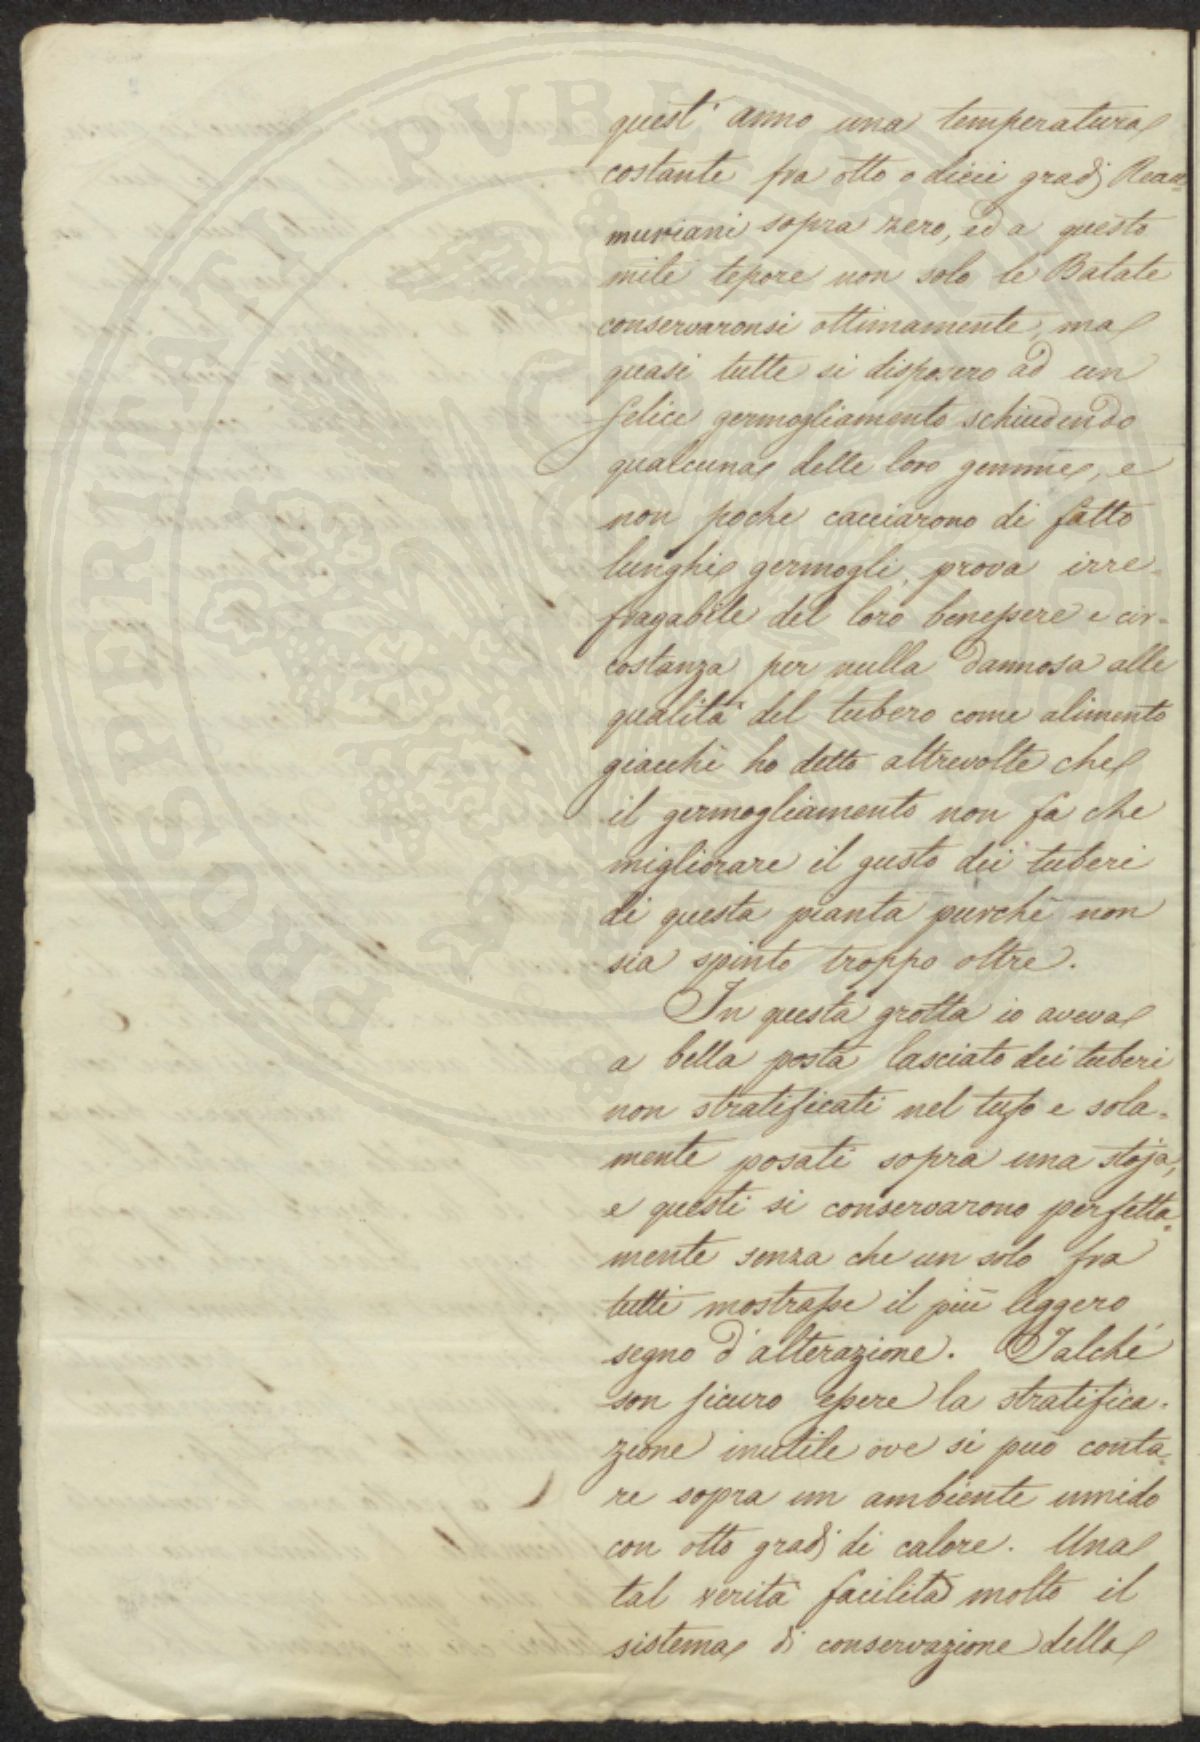 quest' anno una temperatura
costante fra otto o dieci gradi Reau=
muriani sopra zero, ed a questo
mite tepore non solo le Batate
conservaronsi ottimamente, ma
quasi tutte si disposero ad un
felice germogliamento schiudendo
qualcuna delle loro gemme, e
non poche cacciarono di fatto
lunghi germogli, prova irre-
fragabile del loro benessere e cir-
costanza per nulla dannosa alle
qualità del tubero come alimento
giacchè ho detto altrevolte che
il germogliamento non fa che
migliorare il gusto dei tuberi
di questa pianta purchè non
sia spinto troppo oltre.
In questa grotta io aveva
a bella posta lasciato dei tuberi
non stratificati nel tufo e sola=
mente posati sopra una stoja,
e questi si conservarono perfetta=
mente senza che un solo fra
tutti mostrasse il più leggero
segno d'alterazione. Talchè
son sicuro essere la stratifica-
zione inutile ove si può conta=
re sopra un ambiente umido
con otto gradi di calore. Una
tal verità facilità molto il
sistema di conservazione della
PROSPERITATI PVBLICAE